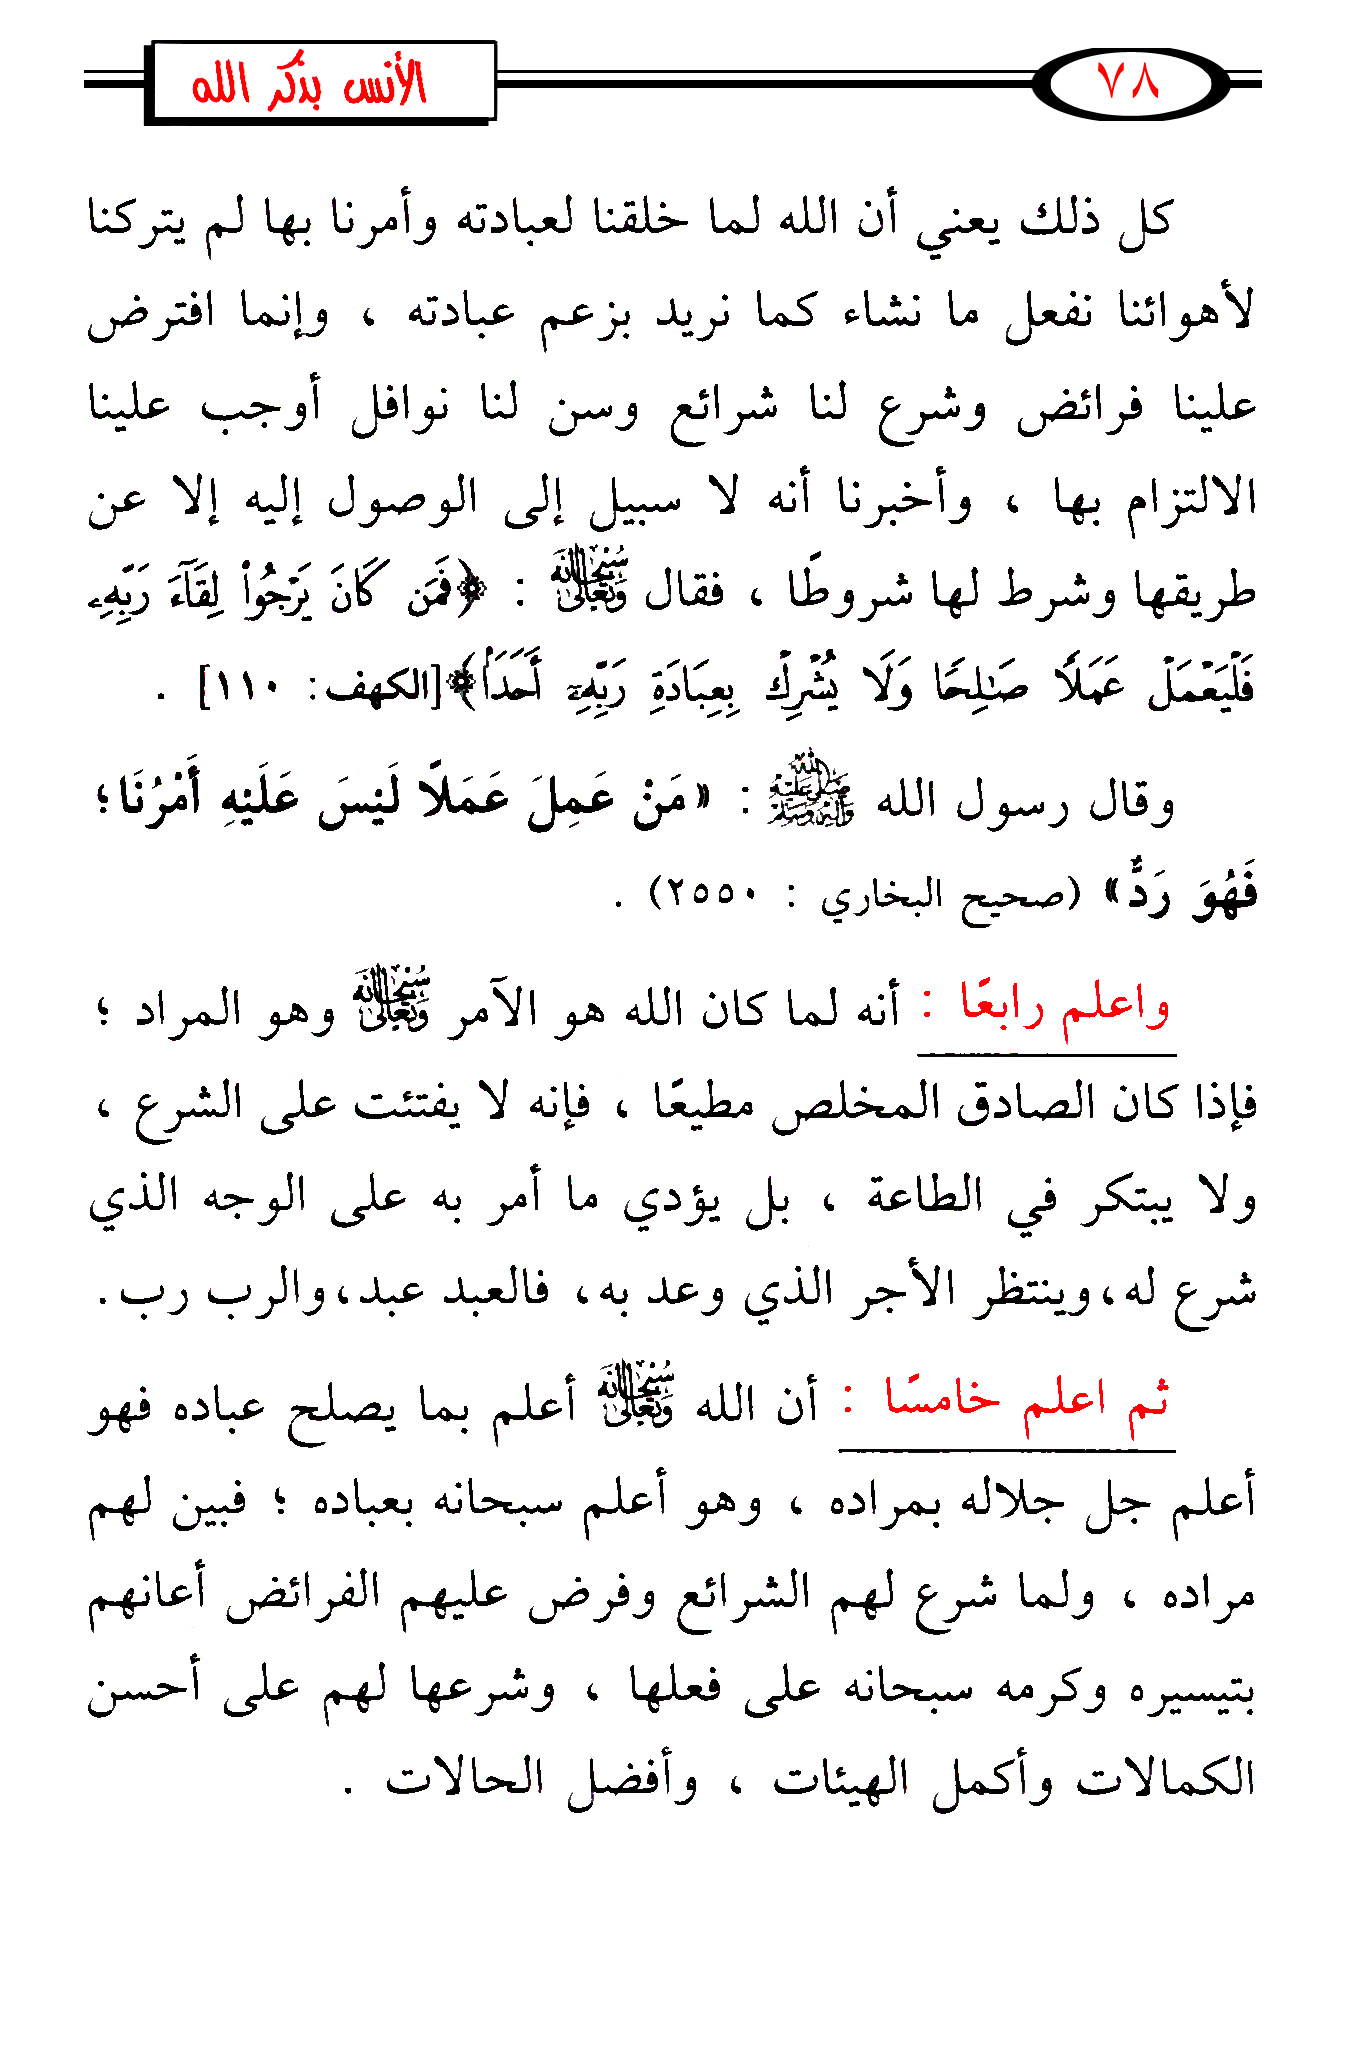 ٧٨
الأنس بذكر الله
كل ذلك يعني أن الله لما خلقنا لعبادته وأمرنا بها لم يتركنا
لأهوائنا نفعل ما نشاء كما نريد بزعم عبادته ، وإنما افترض
علينا فرائض وشرع لنا شرائع وسن لنا نوافل أوجب علينا
الالتزام بها ، وأخبرنا أنه لا سبيل إلى الوصول إليه إلا عن
طريقها وشرط لها شروطًا ، فقال سُبْحَانَهُ وَتَعَالَىٰ : ﴿فَمَن كَانَ يَرْجُوا۟ لِقَآءَ رَبِّهِۦ
فَلْيَعْمَلْ عَمَلًا صَـٰلِحًا وَلَا يُشْرِكْ بِعِبَادَةِ رَبِّهِۦٓ أَحَدًۢا﴾[الكهف: ١١٠] .
وقال رسول الله ﷺ : « مَنْ عَمِلَ عَمَلًا لَيْسَ عَلَيْهِ أَمْرُنَا ؛
فَهُوَ رَدٌّ » (صحيح البخاري : ٢٥٥٠) .
واعلم رابعًا : أنه لما كان الله هو الآمر سُبْحَانَهُ وَتَعَالَىٰ وهو المراد ؛
فإذا كان الصادق المخلص مطيعًا ، فإنه لا يفتئت على الشرع ،
ولا يبتكر في الطاعة ، بل يؤدي ما أمر به على الوجه الذي
شرع له ، وينتظر الأجر الذي وعد به ، فالعبد عبد ، والرب رب .
ثم اعلم خامسًا : أن الله سُبْحَانَهُ وَتَعَالَىٰ أعلم بما يصلح عباده فهو
أعلم جل جلاله بمراده ، وهو أعلم سبحانه بعباده ؛ فبين لهم
مراده ، ولما شرع لهم الشرائع وفرض عليهم الفرائض أعانهم
بتيسيره وكرمه سبحانه على فعلها ، وشرعها لهم على أحسن
الكمالات وأكمل الهيئات ، وأفضل الحالات .